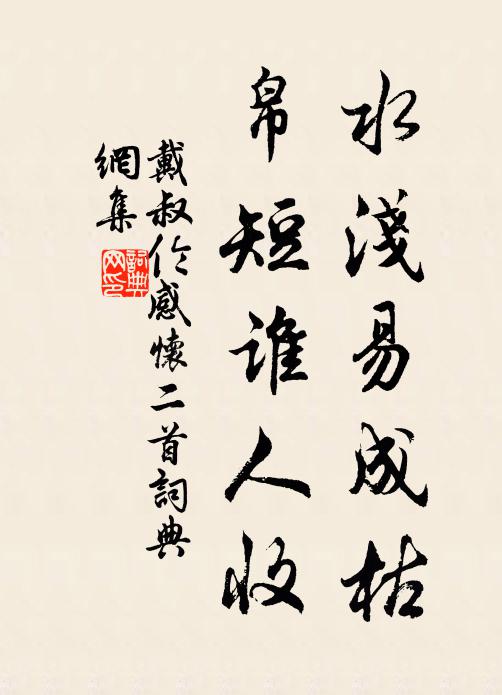 水淺易成枯
帛短誰人收
戴叔伦感懷二首詞典
網集
詞典网印